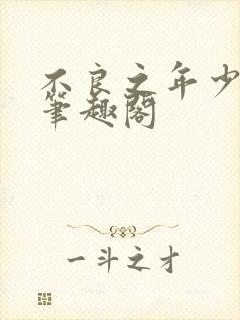 不良之年少
筆趣閣
一斗之才